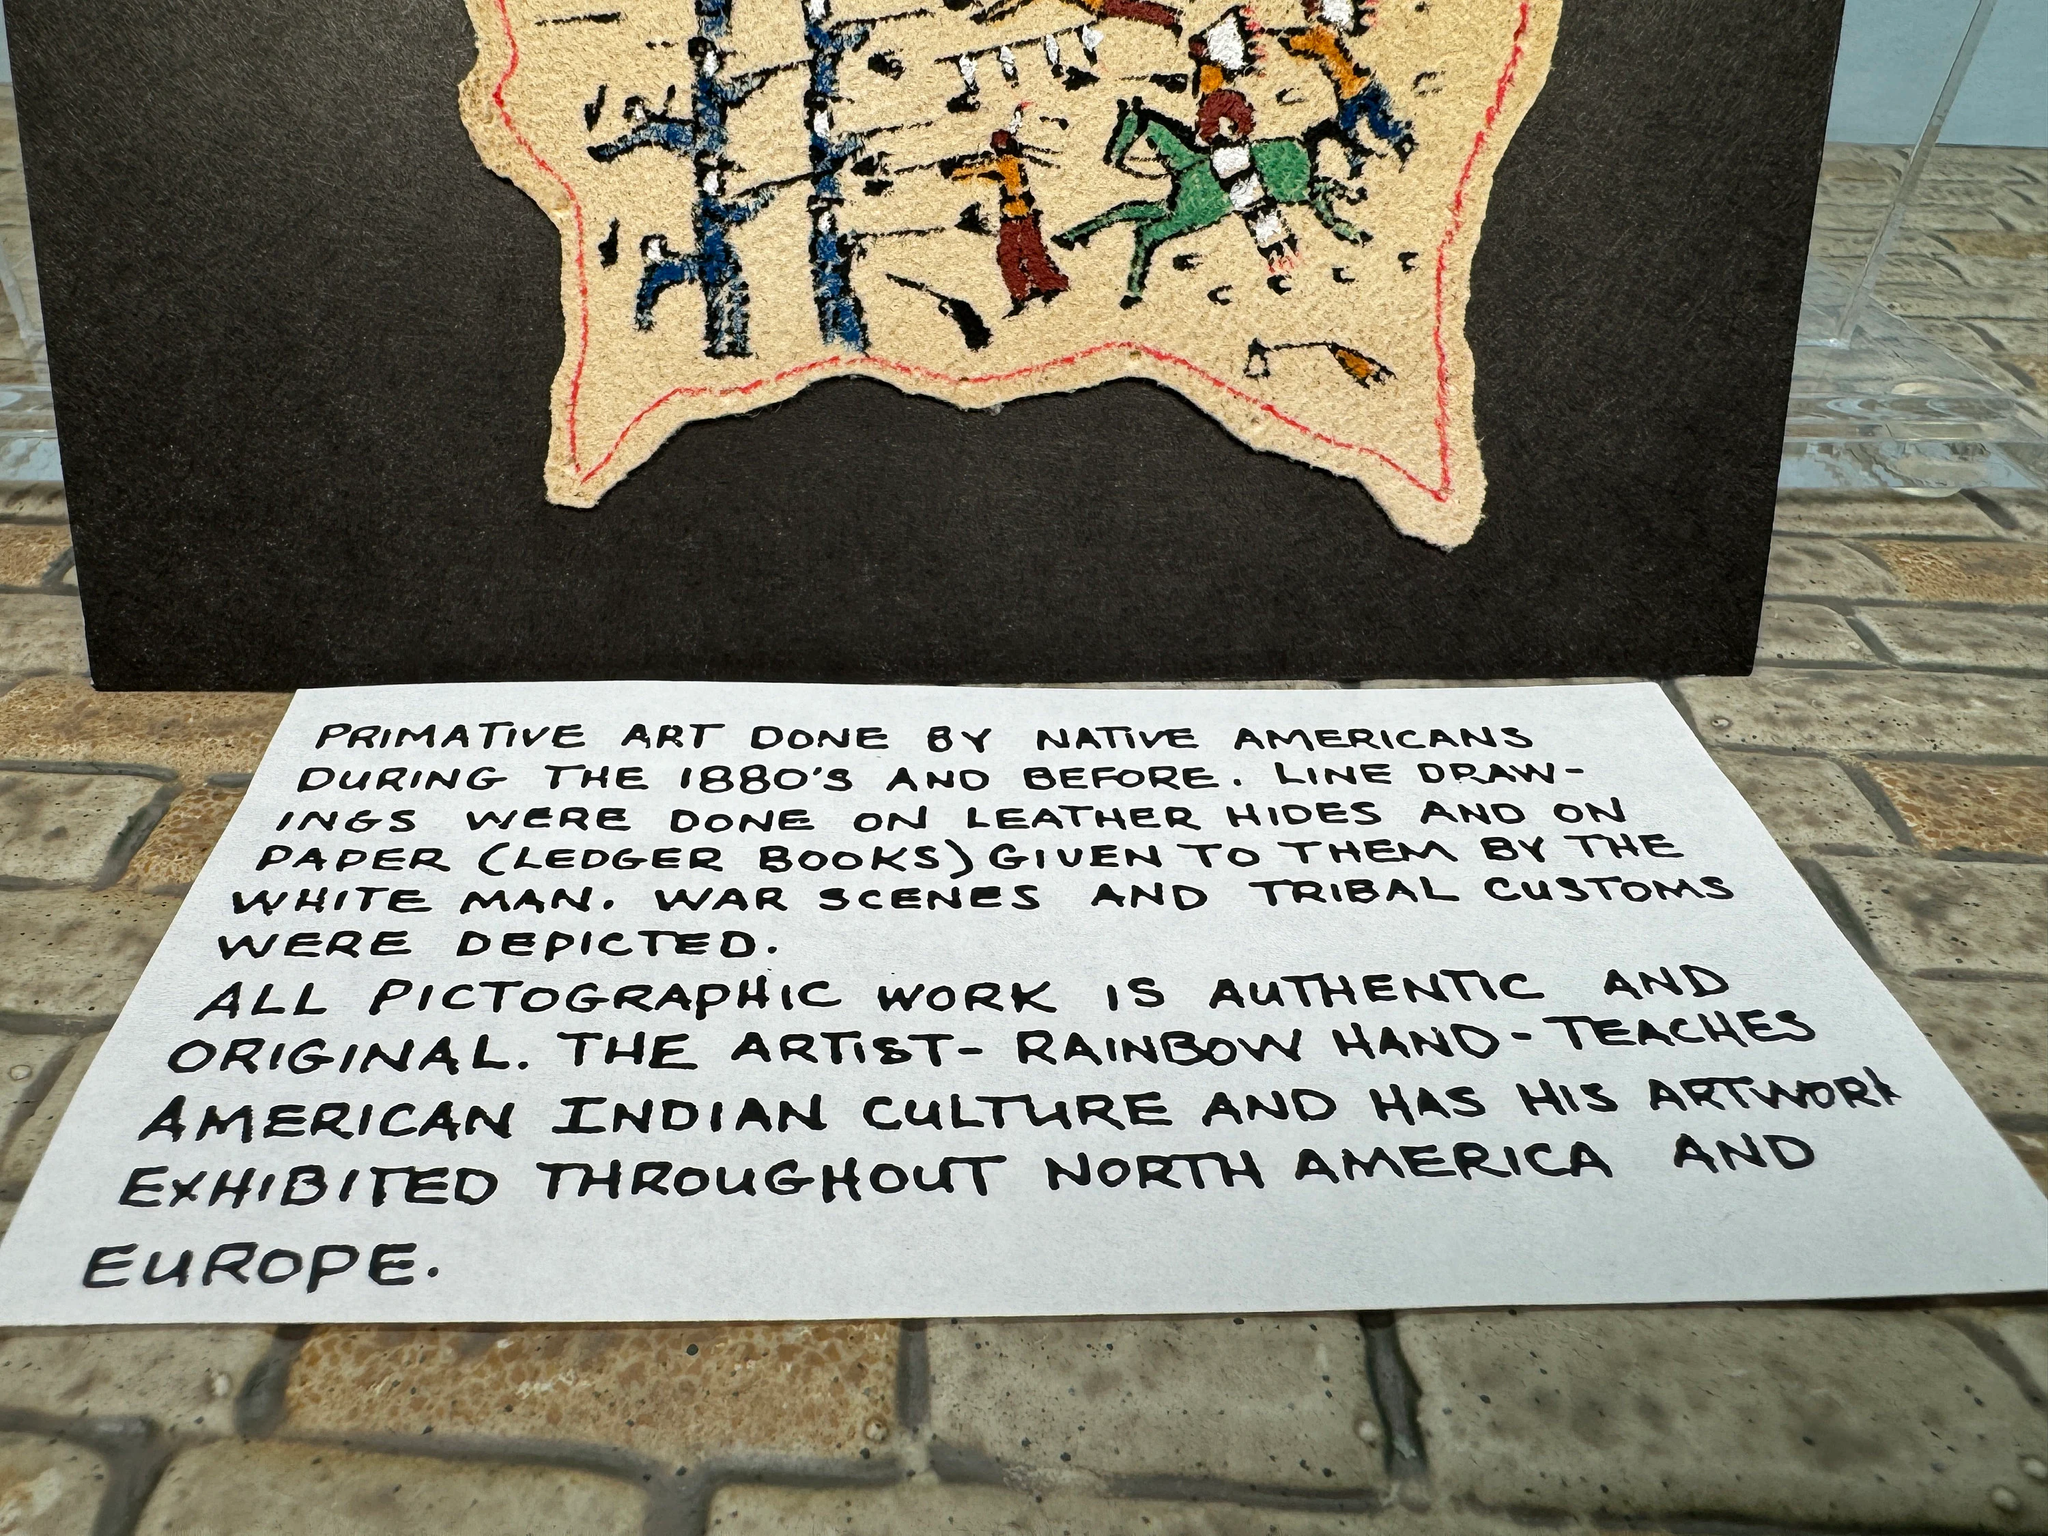 PRIMATIVE ART DONE BY NATIVE AMERICANS
DURING THE 1880'S AND BEFORE. LINE DRAW-
INGS WERE DONE ON LEATHER HIDES AND ON
PAPER (LEDGER BOOKS) GIVEN TO THEM BY THE
WHITE MAN. WAR SCENES AND TRIBAL CUSTOMS
WERE DEPICTED.
ALL PICTOGRAPHIC WORK IS AUTHENTIC AND
ORIGINAL. THE ARTIST- RAINBOW HAND- TEACHES
AMERICAN INDIAN CULTURE AND HAS HIS ARTWORK
EXHIBITED THROUGHOUT NORTH AMERICA AND
EUROPE.